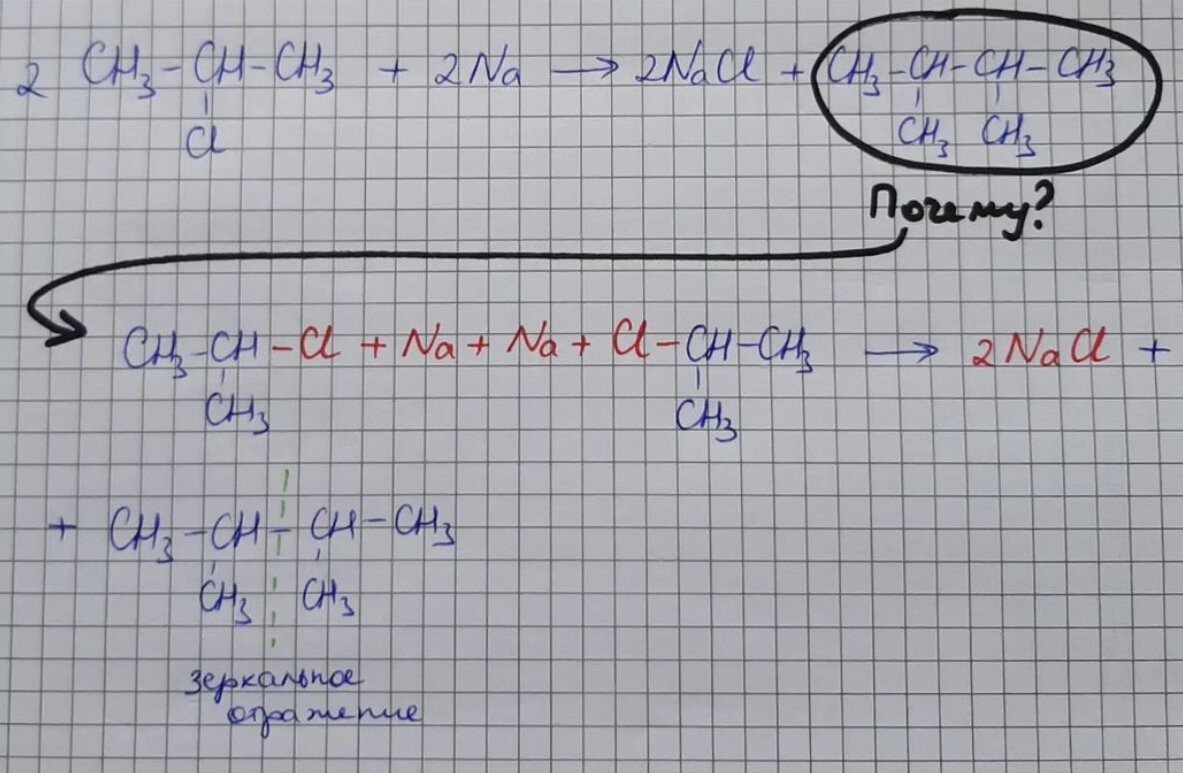 2 CH₃-CH-CH₃ + 2Na → 2NaCl + CH₃-CH-CH-CH₃
Cl CH₃ CH₃
Почему?
CH₃-CH-Cl + Na + Na + Cl-CH-CH₃ → 2NaCl +
CH₃ CH₃
+ CH₃-CH-CH-CH₃
CH₃ CH₃
зеркальное
отражение